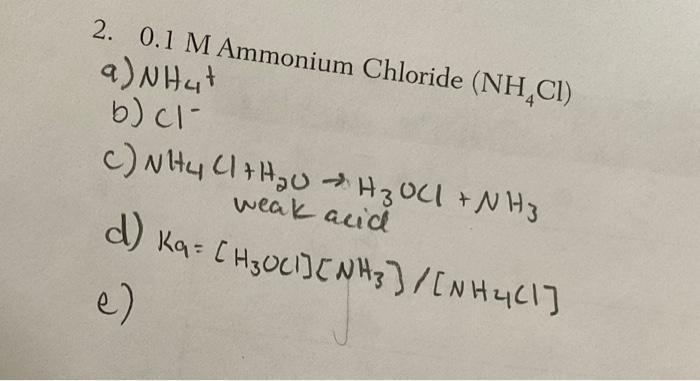 2. 0.1 M Ammonium Chloride (NH₄Cl)
a) NH4+
b) Cl-
c) NH4Cl + H2O → H3OCl + NH3
weak acid
d) Ka = [H3OCl][NH3] / [NH4Cl]
e)